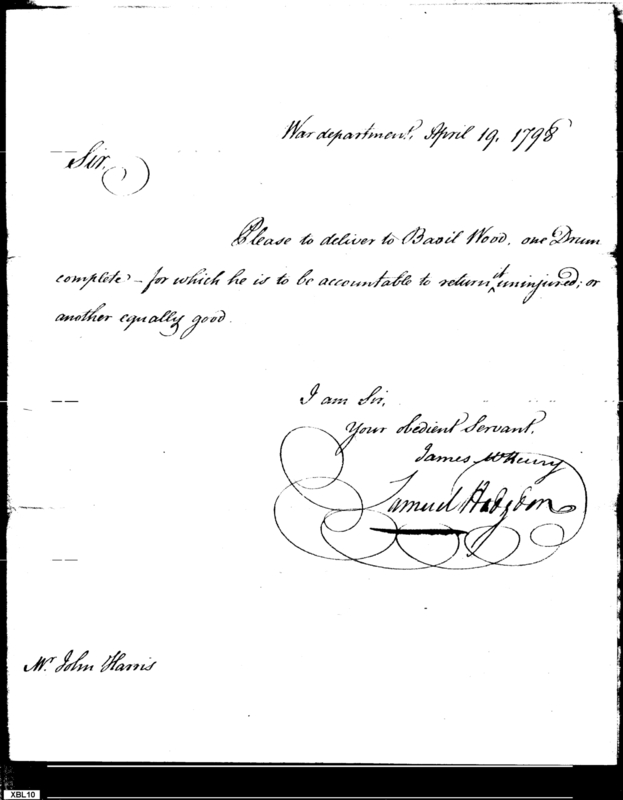 War department, April 19, 1798
Sir,
Please to deliver to Basil Wood, one Drum
complete – for which he is to be accountable to return it uninjured; or
another equally good.
I am Sir,
Your obedient Servant,
James McHenry
Samuel Hodgdon
Mr. John Harris
XBL10